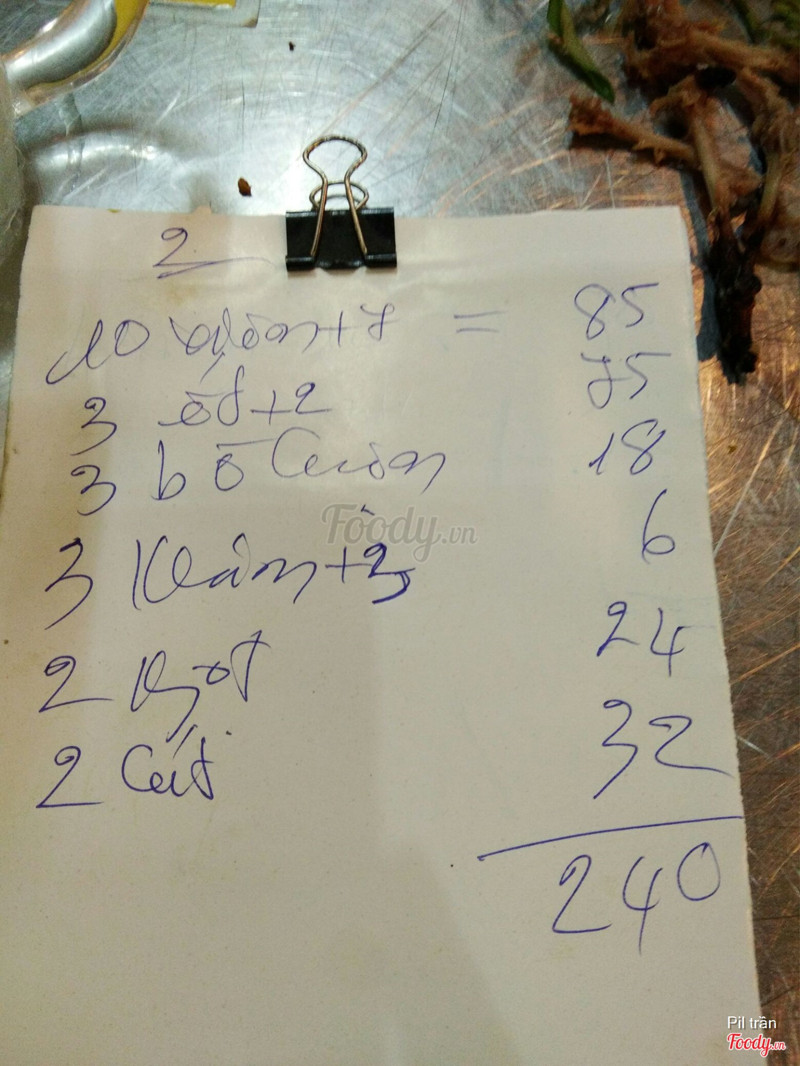 2
10 +7 = 85
3 +2 75
3 bò Cuộn 18
3 Khăn 6
2 ngọt 24
2 Cút 32
240
Foody.vn
Pil trần
Foody.vn